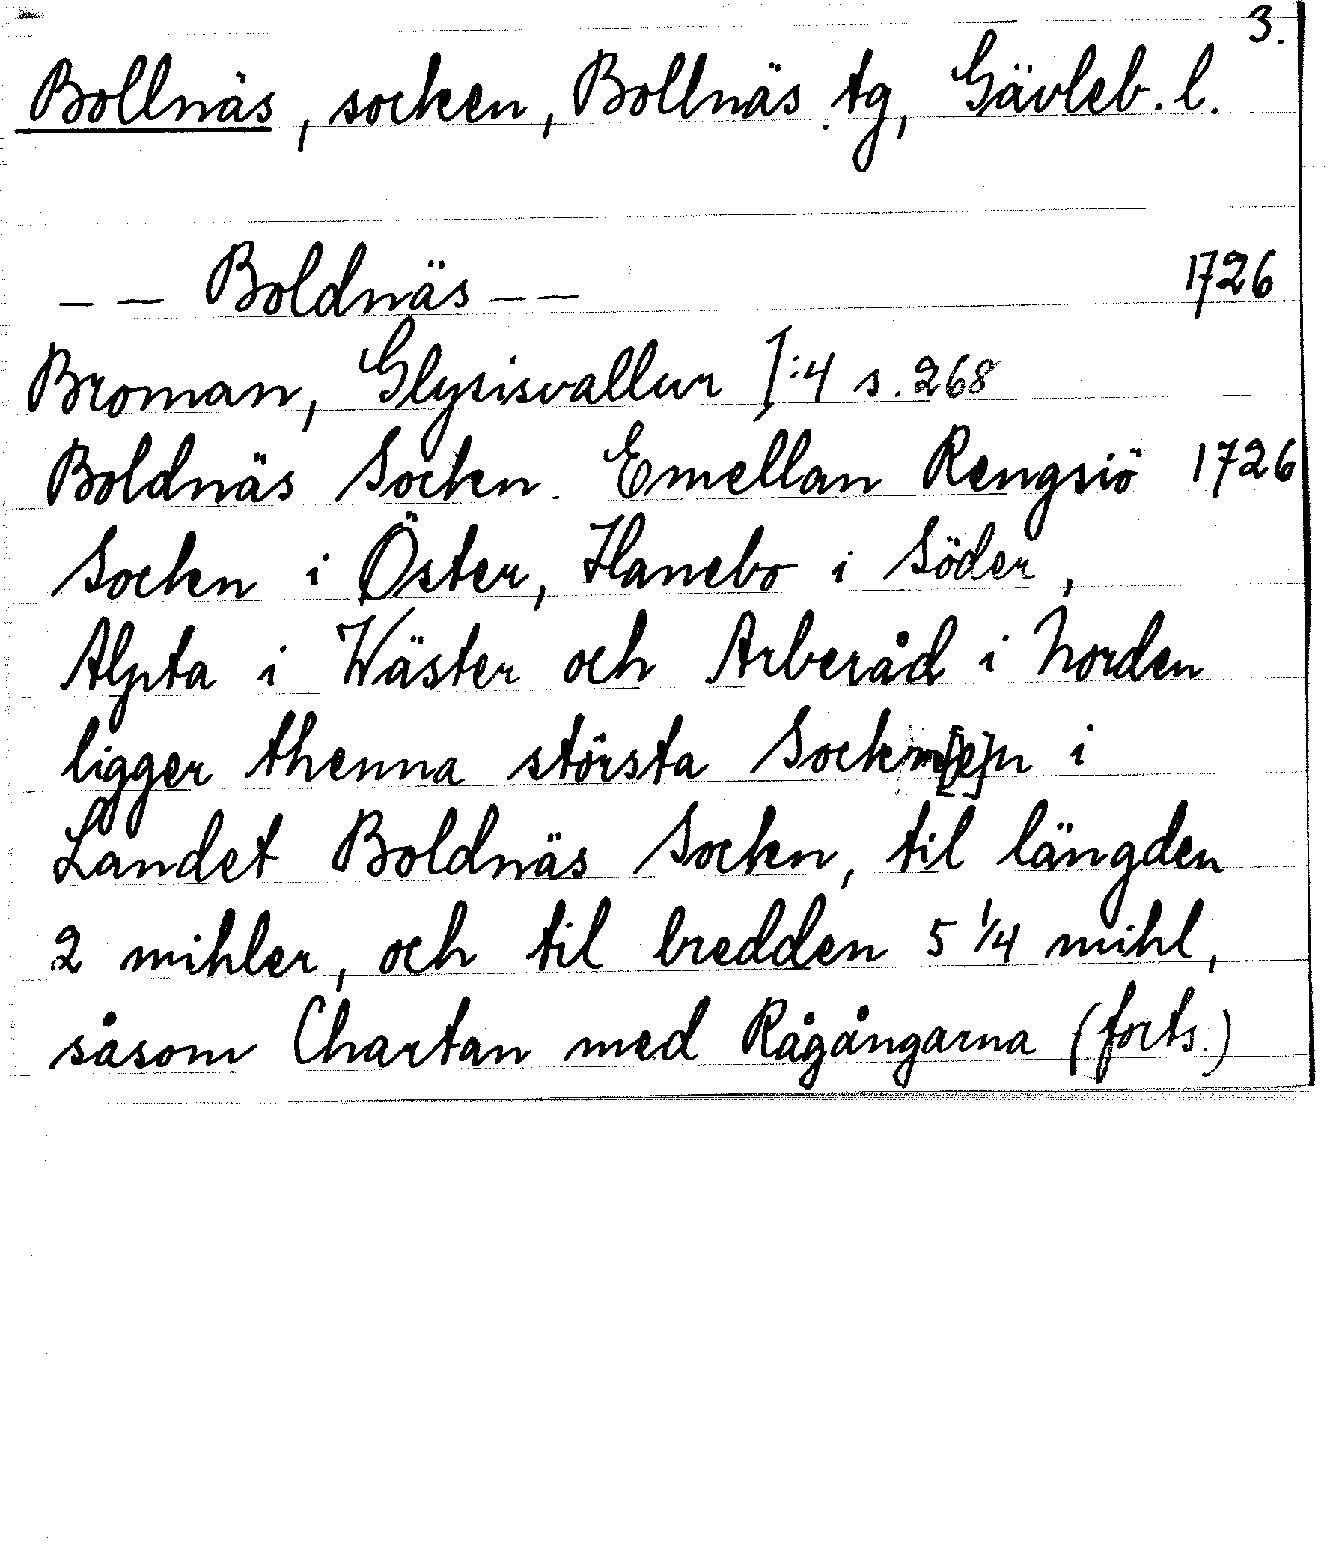 3.
Bollnäs, socken, Bollnäs tg, Gävleb. l.
– – Boldnäs – – 1726
Broman, Glysisvallur I:4 s. 268
Boldnäs Sockn. Emellan Rengsiö 1726
Sockn i Öster, Hanebo i Söder,
Alpta i Wäster och Arberåd i Norden
ligger thenna största Sockn[e]n i
Landet Boldnäs Sockn, til längden
2 mihler, och til bredden 5 1/4 mihl,
såsom Chartan med Rågångarna (forts.)